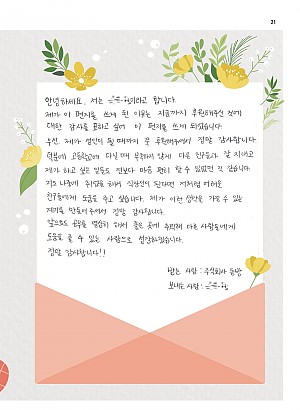 21
안녕하세요, 저는 ○○○이라고 합니다.
제가 이 편지를 쓰게 된 이유는 지금까지 후원해주신 것에
대한 감사를 표하고 싶어 이 편지를 쓰게 되었습니다.
우선, 제가 성인이 될 때까지 쭉 후원해주셔서 정말 감사합니다.
덕분에 고등학교에 다닐 때 부족하지 않게 다른 친구들과 잘 지내고
제가 하고 싶은 일들도 전보다 마음 편히 할 수 있었던 것 같습니다.
저도 나중에 취업을 해서 직장인이 된다면 저처럼 어려운
친구들에게 도움을 주고 싶습니다. 제가 이런 생각을 가질 수 있는
계기를 만들어주셔서 정말 감사합니다.
앞으로도 공부를 열심히 해서 좋은 곳에 취직해 다른 사람들에게
도움을 줄 수 있는 사람으로 성장하겠습니다.
정말 감사합니다!!
받는 사람 : 주식회사 동방
보내는 사람 :